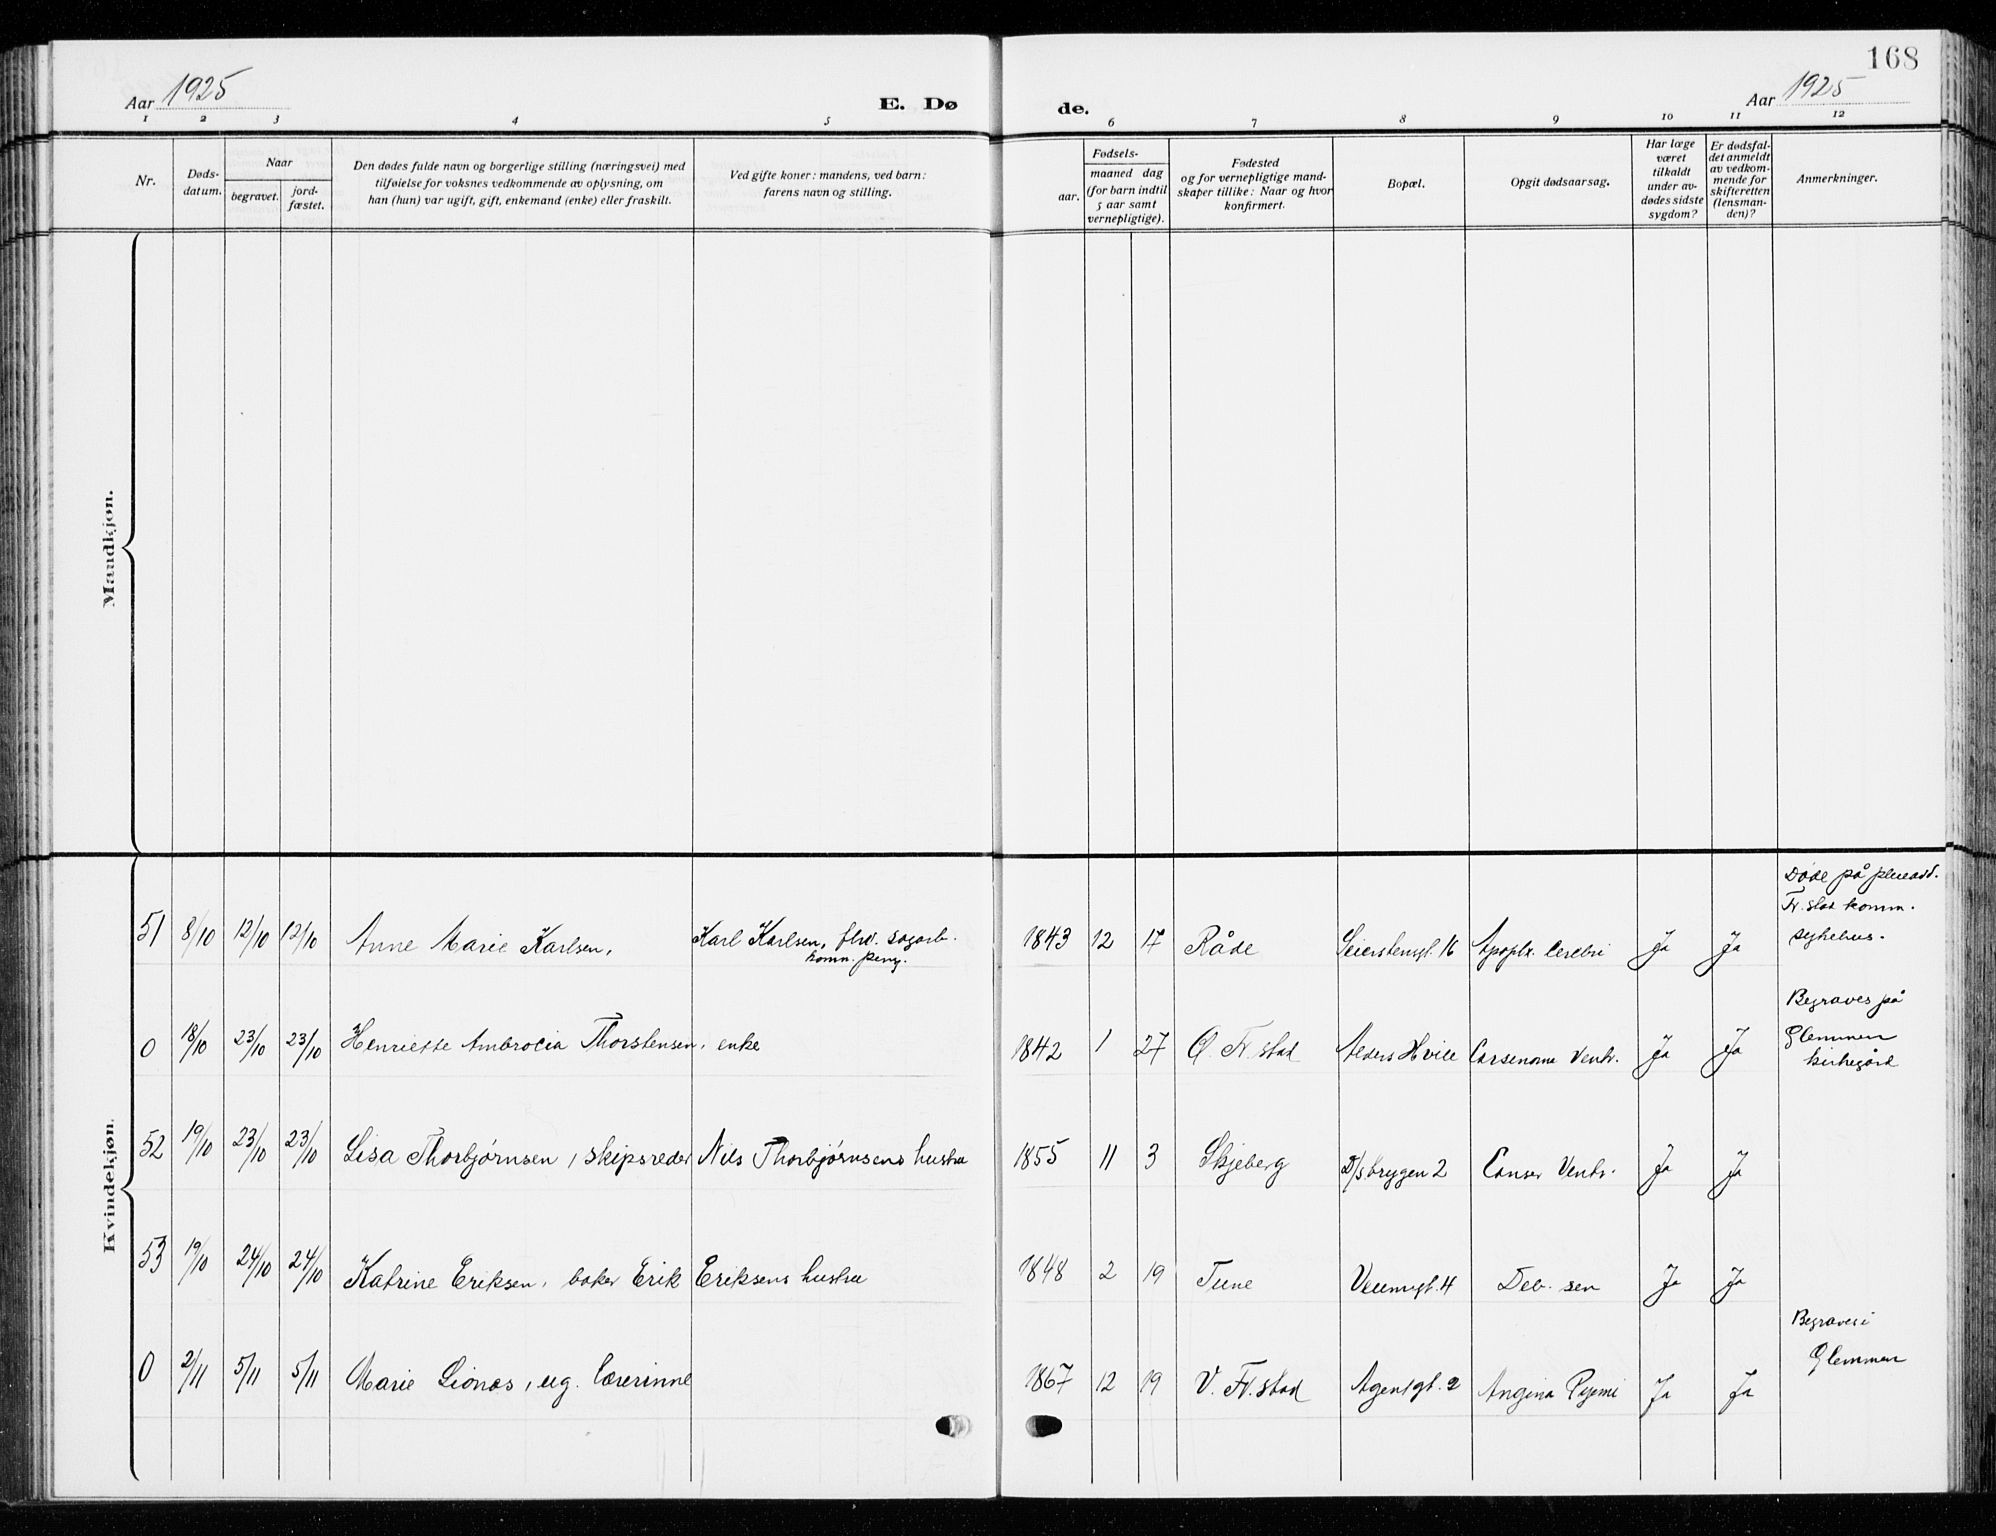 168
Aar 1925
E. Dø de.
Aar 1925
1 2 3 4 5 6 7 8 9 10 11 12
Nr.
Døds-
datum.
Naar
begravet.
jord-
fæstet.
Den dødes fulde navn og borgerlige stilling (næringsvei) med
tilføielse for voksnes vedkommende av oplysning, om
han (hun) var ugift, gift, enkemand (enke) eller fraskilt.
Ved gifte koner: mandens, ved barn:
farens navn og stilling.
Fødsels-
aar.
maaned dag
(for barn indtil
5 aar samt
vernepligtige).
Fødested
og for vernepligtige mand-
skaper tillike: Naar og hvor
konfirmert.
Bopæl.
Opgit dødsaarsag.
Har læge
været
tilkaldt
under av-
dødes sidste
sygdom?
Er dødsfal-
det anmeldt
av vedkom-
mende for
skifteretten
(lensman-
den)?
Anmerkninger.
Mandkjøn.
Kvindekjøn.
51 8/10 12/10 12/10 Anne Marie Karlsen, Karl Karlsen, fhv. sagarb. 1843 12 17 Råde Seierstensgt. 16 Apoplx. Cerebri Ja Ja
komm. peng.
Døde på pleieavd.
Fr.stad komm.
sykehus.
0 18/10 23/10 23/10 Henriette Ambrocia Thorstensen, enke 1842 1 27 Ø. Fr.stad Alders Hvile Carsenome Ventr. Ja Ja
Begraves på
Glemmen
kirkegård
52 19/10 23/10 23/10 Lisa Thorbjørnsen, skipsreder Nils Thorbjørnsens hustru 1855 11 3 Skjeberg D/sbryggen 2 Canser Ventr. Ja Ja
53 19/10 24/10 24/10 Katrine Eriksen, baker Erik Eriksens hustru 1848 2 19 Tune Veumsgt. 4 Deb. sen Ja Ja
0 2/11 5/11 5/11 Marie Lionæs, ug. lærerinne 1867 12 19 V. Fr.stad Agentgt. 2 Angina Pyemi Ja Ja
Begraves i
Glemmen